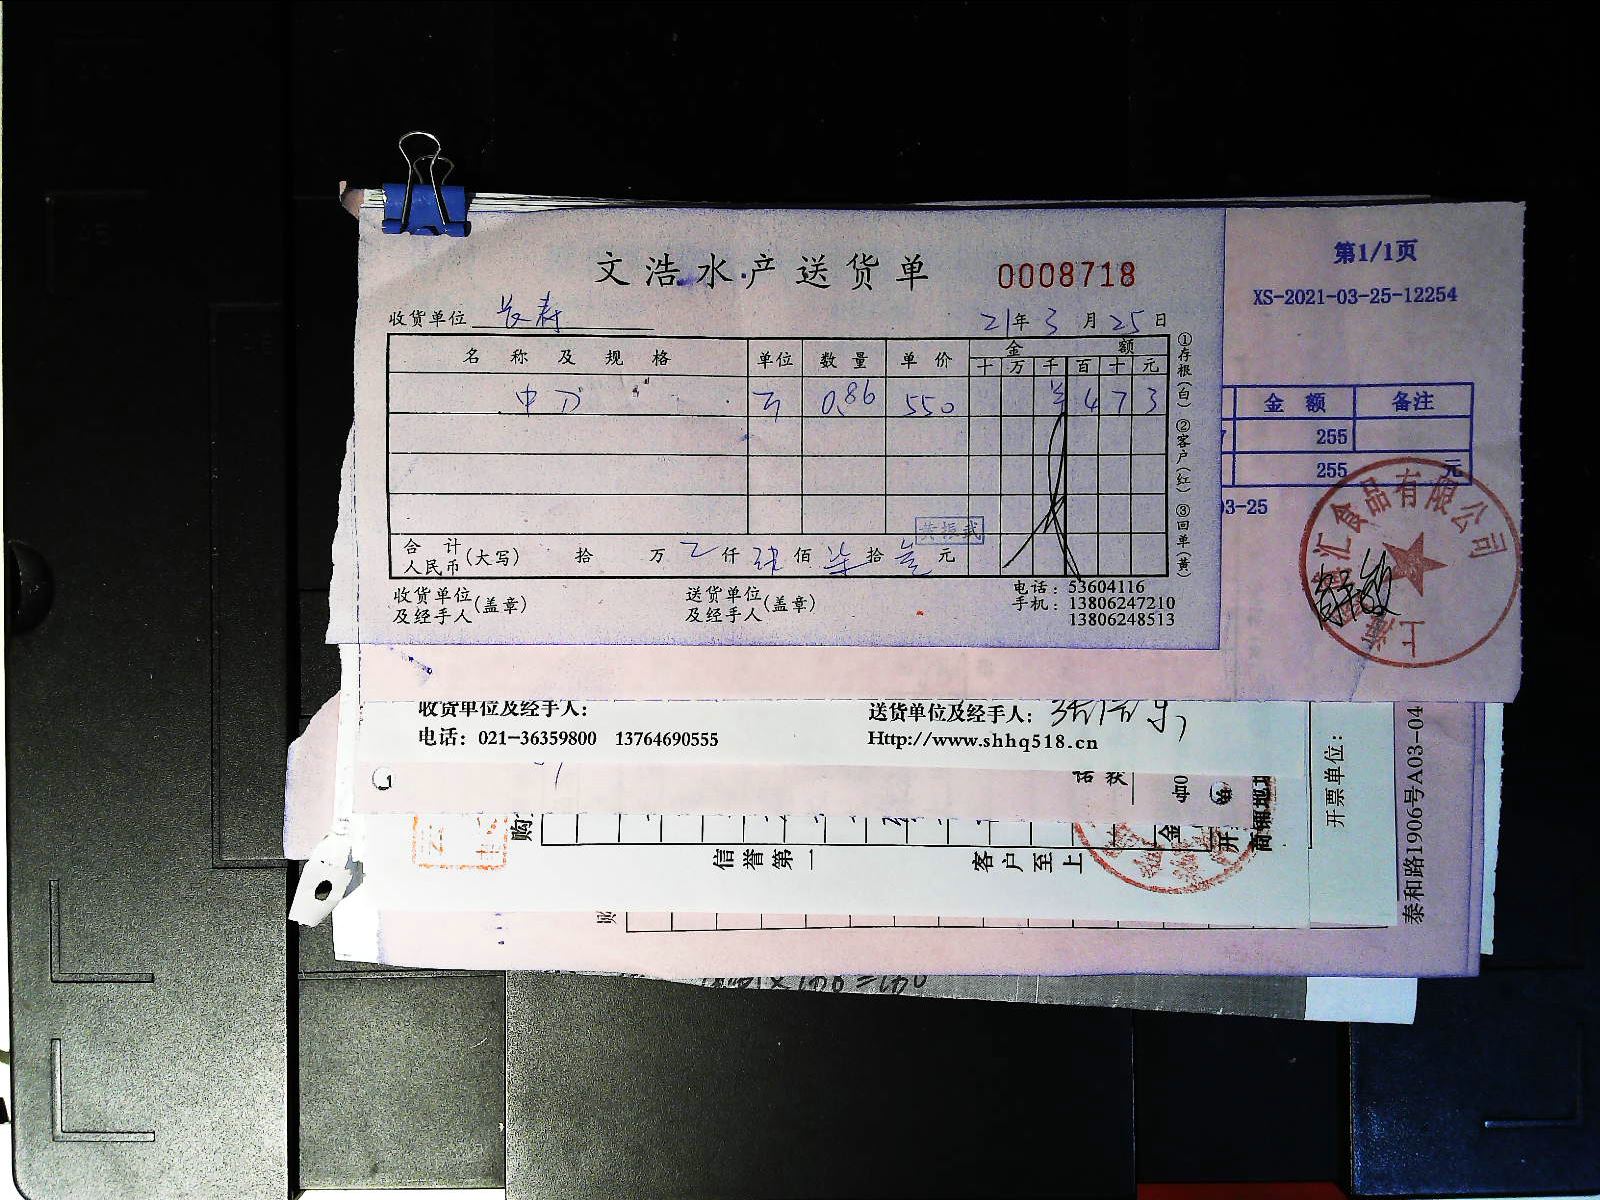 文浩水产送货单 0008718
第1/1页
XS-2021-03-25-12254
收货单位 长寿 21年3月25日
名称及规格 单位 数量 单价 金额
十 万 千 百 十 元
中刀 0.86 550 ¥ 4 7 3
①存根(白) ②客户(红) ③回单(黄)
金额 备注
255
255 元
03-25
黄振武
合计人民币(大写) 拾 万 仟 佰 柒拾 元
收货单位及经手人(盖章) 送货单位及经手人(盖章)
电话:53604116
手机:13806247210
13806248513
汇食品有限公司
上海
收货单位及经手人:
送货单位及经手人:
电话:021-36359800 13764690555
Http://www.shhq518.cn
开票单位:
泰和路1906号A03-04
购
金
开
商铺地
信誉第一 客户至上